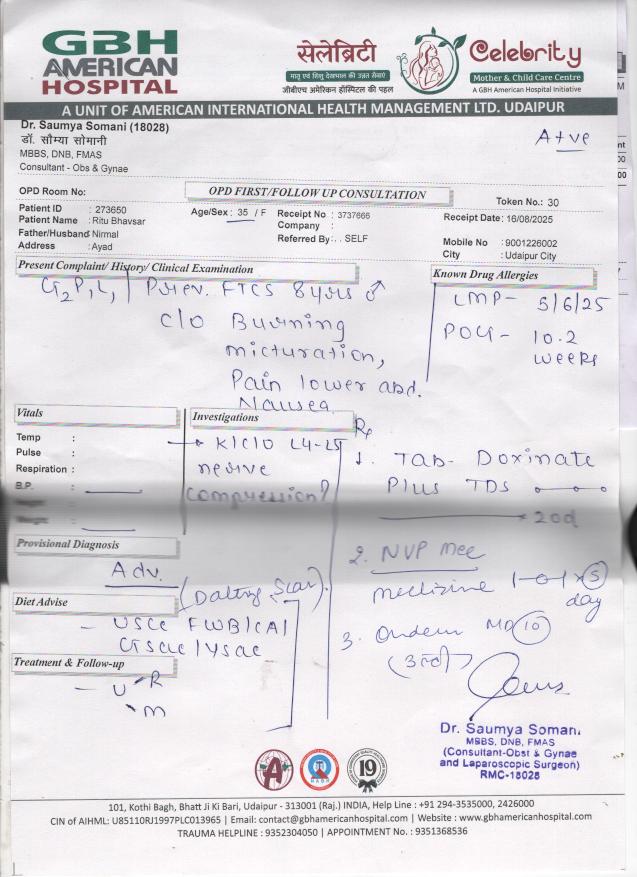 GBH
AMERICAN
HOSPITAL
सेलेब्रिटी
मातृ एवं शिशु देखभाल की उन्नत सेवाएं
जीबीएच अमेरिकन हॉस्पिटल की पहल
Celebrity
Mother & Child Care Centre
A GBH American Hospital Initiative
A UNIT OF AMERICAN INTERNATIONAL HEALTH MANAGEMENT LTD. UDAIPUR
Dr. Saumya Somani (18028)
डॉ. सौम्या सोमानी
MBBS, DNB, FMAS
Consultant - Obs & Gynae
A+ve
OPD Room No:
OPD FIRST/FOLLOW UP CONSULTATION
Token No.: 30
Patient ID : 273650
Patient Name : Ritu Bhavsar
Father/Husband Nirmal
Address : Ayad
Age/Sex: 35 / F
Receipt No : 3737666
Company :
Referred By: . . SELF
Receipt Date: 16/08/2025
Mobile No : 9001226002
City : Udaipur City
Present Complaint/ History/ Clinical Examination
G2P1L1 / Prev. FTCS 8yrs ♂
c/o Burning
micturation,
Pain lower abd.
Nausea
Known Drug Allergies
LMP- 5/6/25
POG- 10.2
weeks
Vitals
Temp :
Pulse :
Respiration :
B.P. :
Weight :
Investigations
→ K/C/O L4-L5
nerve
compression?
Rx
1. Tab- Doxinate
Plus TDS
x 20d
2. NVP
meclizine 1-0-1 x 5
day
3. MD 10
Provisional Diagnosis
Adv.
(Dating Scan)
Diet Advise
- USG FWB/CA/
Treatment & Follow-up
- U R
M
Dr. Saumya Somani
MBBS, DNB, FMAS
(Consultant-Obst & Gynae
and Laparoscopic Surgeon)
RMC-18028
19
101, Kothi Bagh, Bhatt Ji Ki Bari, Udaipur - 313001 (Raj.) INDIA, Help Line : +91 294-3535000, 2426000
CIN of AIHML: U85110RJ1997PLC013965 | Email: contact@gbhamericanhospital.com | Website : www.gbhamericanhospital.com
TRAUMA HELPLINE : 9352304050 | APPOINTMENT No. : 9351368536